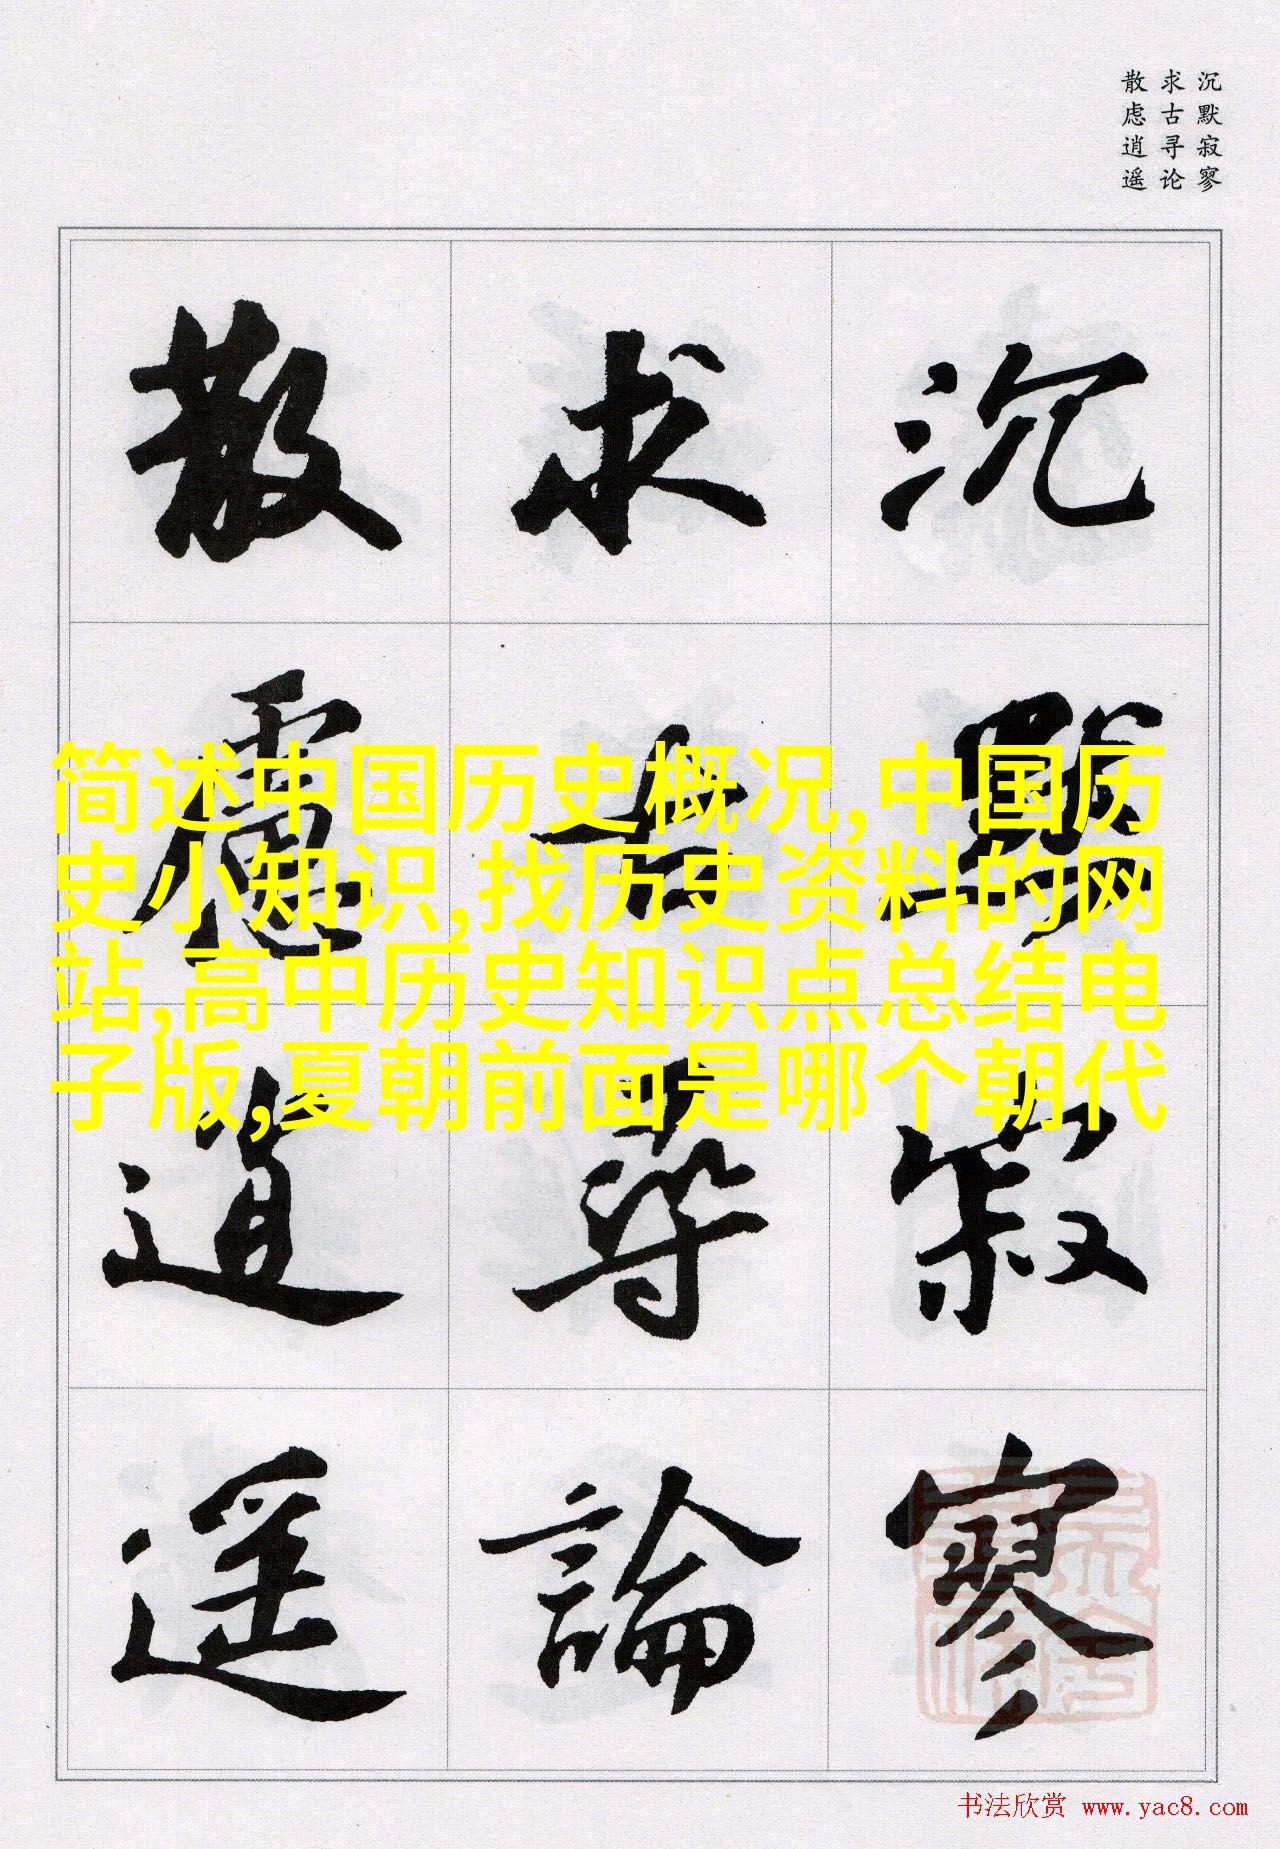 沉默寂寥
求古寻论
散虑逍遥
沉默寂寥
求古尋論
散慮逍遥
简述中国历史概况,中国历
史小知识,找历史资料的网
站,高中历史知识点总结电
子版,夏朝前面是哪个朝代
书法欣赏 www.yac8.com